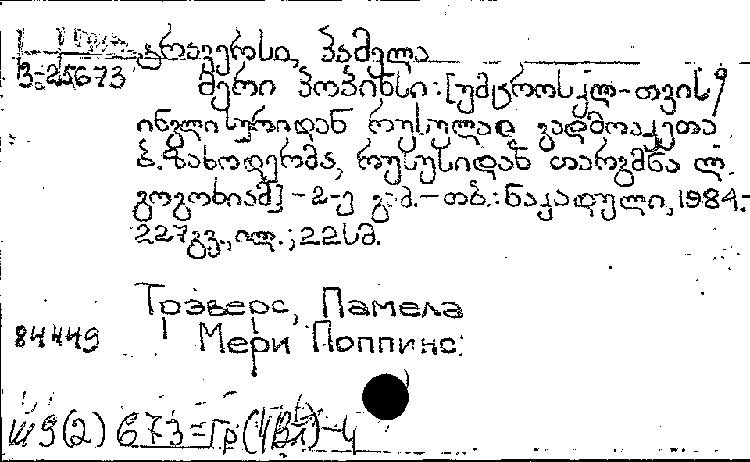 ტრავერსი, პამელა
3-25673 მერი პოპინსი: [უმცროსკლ-თვის /
ინგლისურიდან რუსულად გადმოაკეთა
ბ. ზახოდერმა, რუსულიდან თარგმნა ლ.
გოგოხიამ] - 2-ე გამ. - თბ.: ნაკადული, 1984.-
227გვ., ილ.; 22სმ.
Трэверс, Памела
84449 Мери Поппинс.